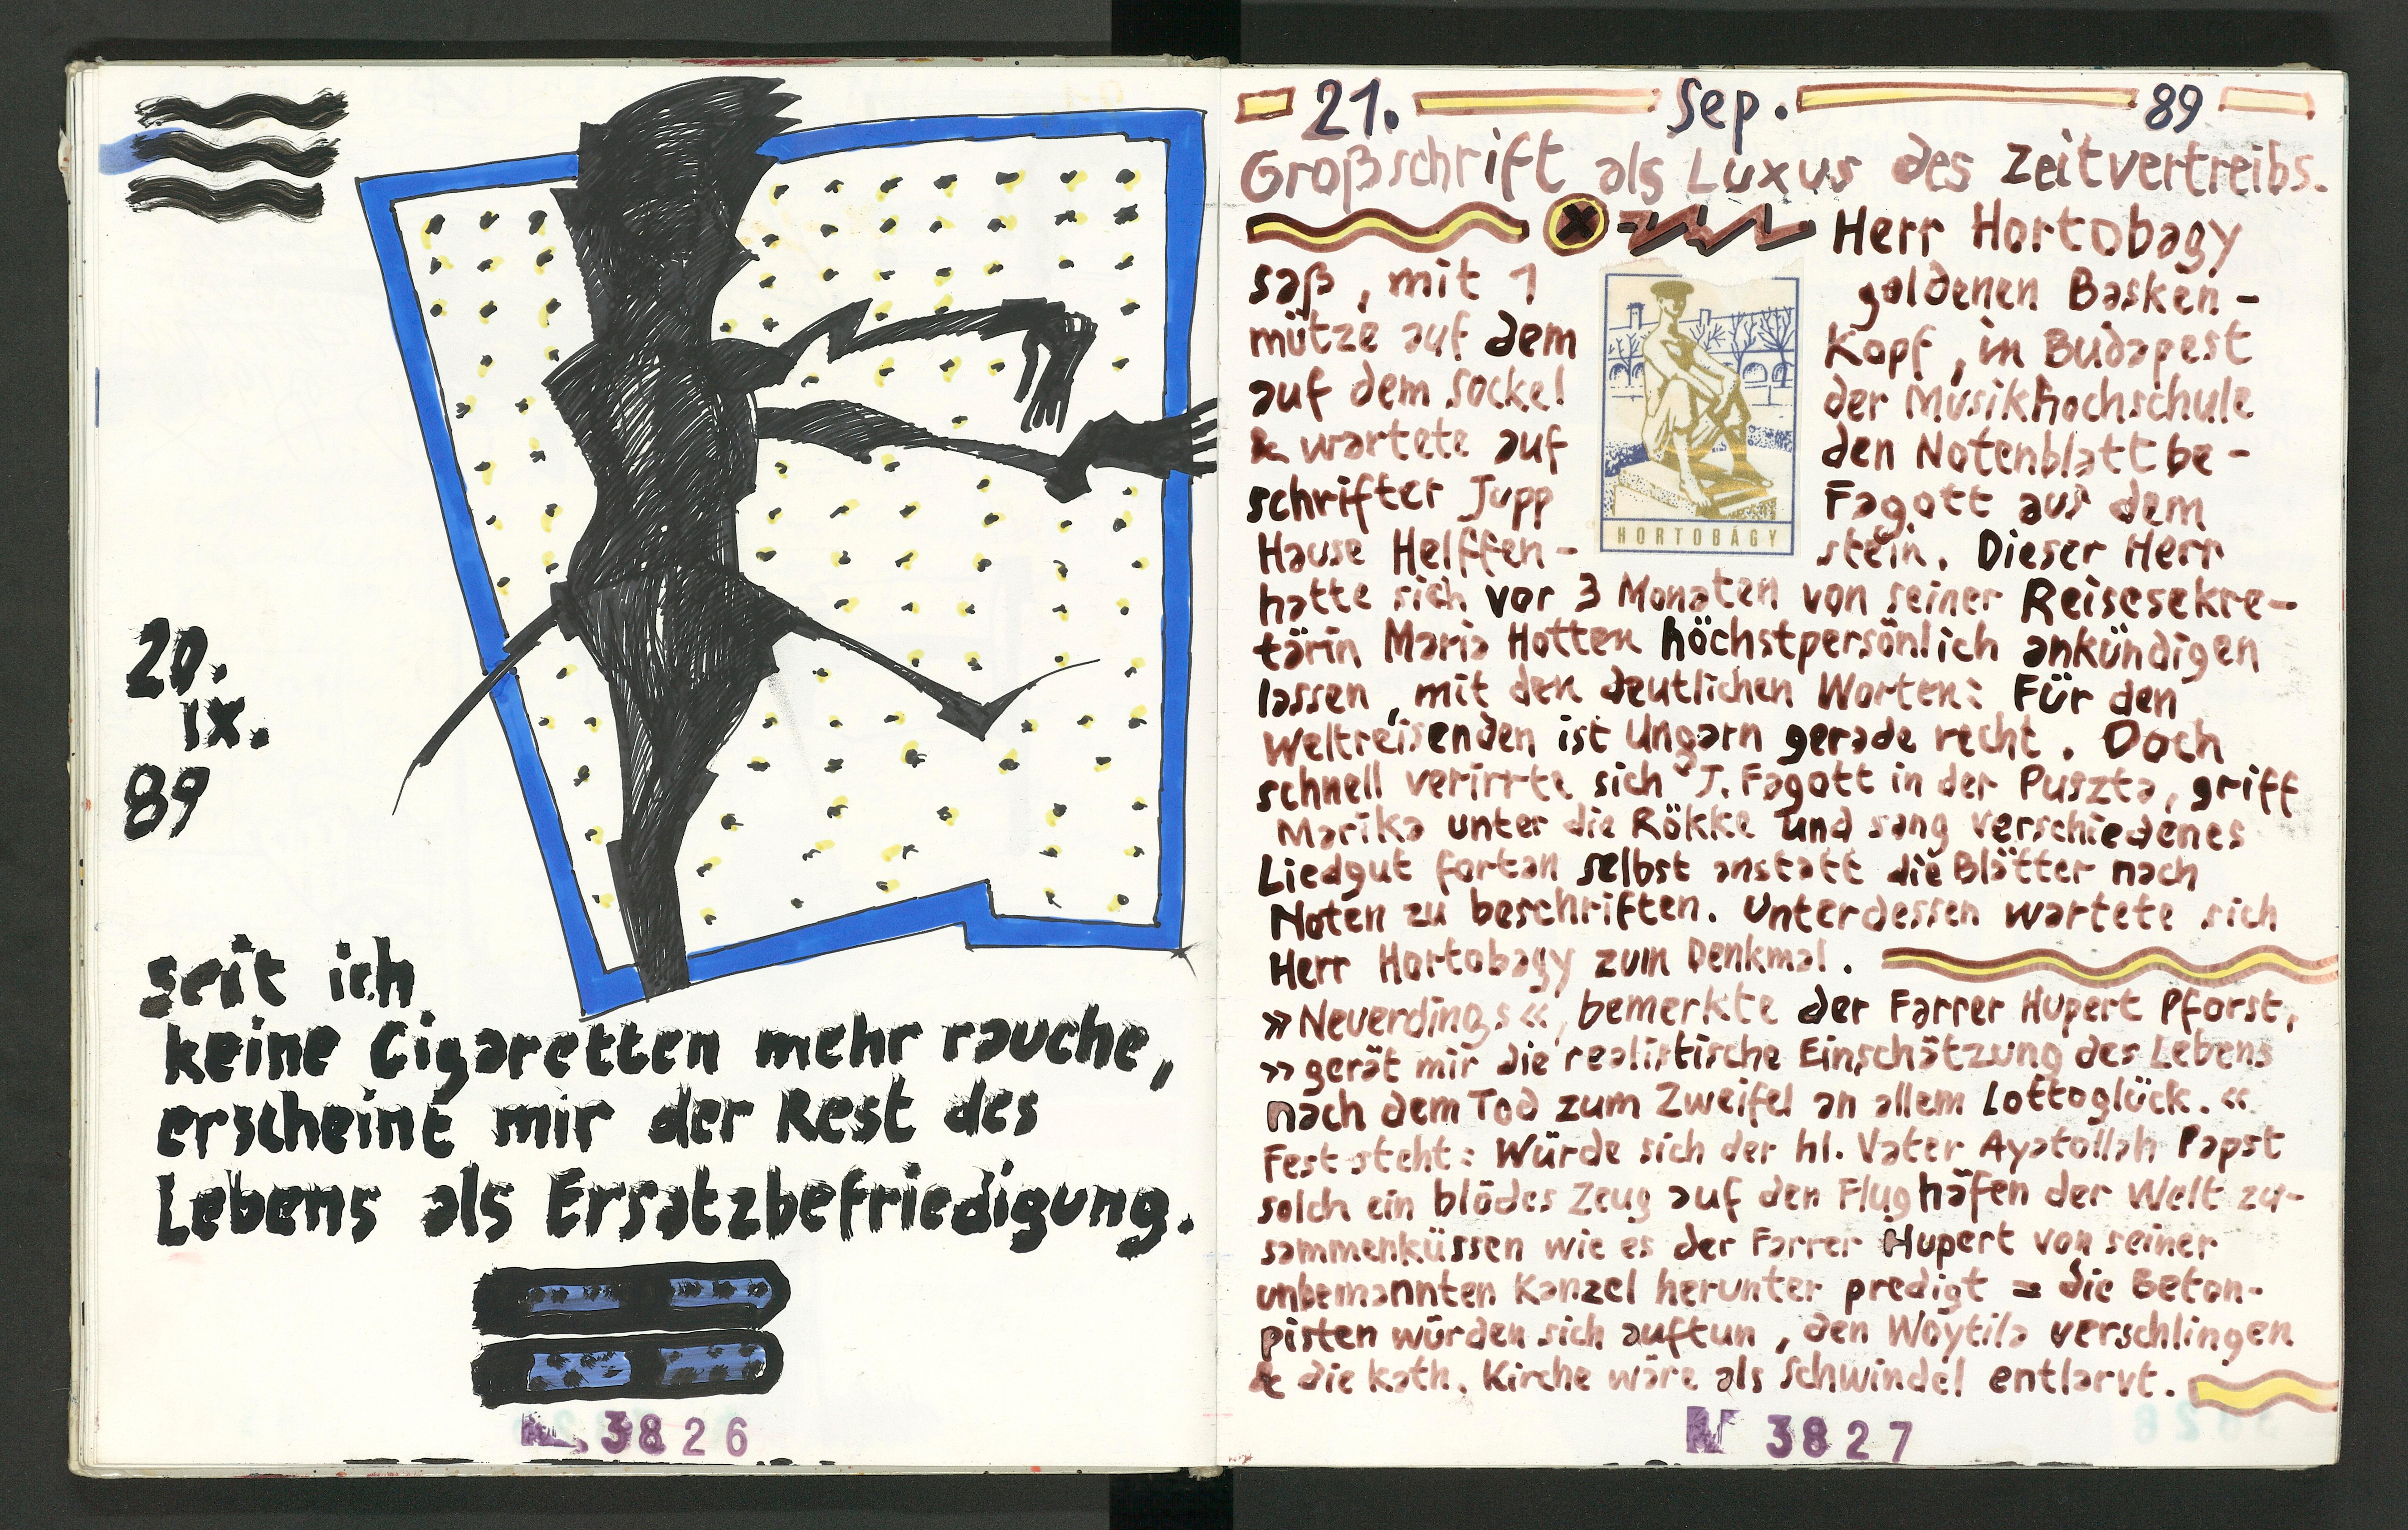 20.
IX.
89
seit ich
keine Cigaretten mehr rauche,
erscheint mir der Rest des
Lebens als Ersatzbefriedigung.
3826
21. Sep. 89
Großschrift als Luxus des Zeitvertreibs.
Herr Hortobagy
saß, mit 1 goldenen Basken-
mütze auf dem Kopf, in Budapest
auf dem Sockel der Musikhochschule
& wartete auf den Notenblattbe-
schrifter Jupp Fagott aus dem
Hause Helffen- stein. Dieser Herr
HORTOBÁGY
hatte sich vor 3 Monaten von seiner Reisesekre-
tärin Maria Hotten höchstpersönlich ankündigen
lassen, mit den deutlichen Worten: Für den
Weltreisenden ist Ungarn gerade recht. Doch
schnell verirrte sich J. Fagott in der Puszta, griff
Marika unter die Rökke und sang verschiedenes
Liedgut fortan selbst anstatt die Blätter nach
Noten zu beschriften. Unterdessen wartete sich
Herr Hortobagy zum Denkmal.
»Neuerdings«, bemerkte der Farrer Hupert Pforst,
»gerät mir die realistische Einschätzung des Lebens
nach dem Tod zum Zweifel an allem Lottoglück.«
Fest steht: Würde sich der hl. Vater Ayatollah Papst
solch ein blödes Zeug auf den Flughäfen der Welt zu-
sammenküssen wie es der Farrer Hupert von seiner
unbemannten Kanzel herunter predigt = die Beton-
pisten würden sich auftun, den Woytila verschlingen
& die kath. Kirche wäre als Schwindel entlarvt.
N 3827